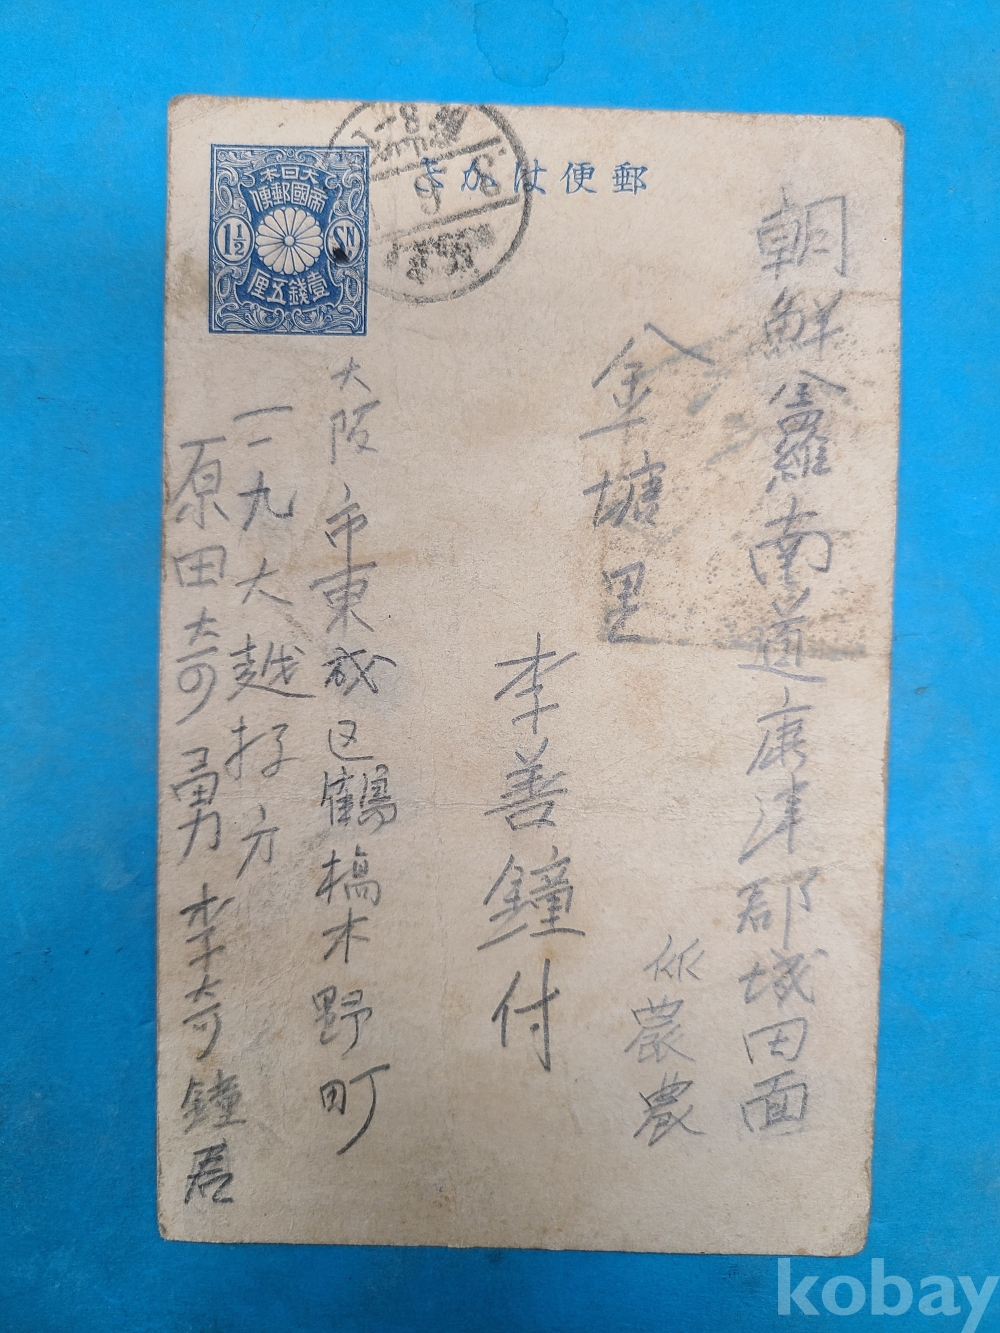 郵便はがき
朝鮮全羅南道康津郡城田面
金塘里
農農
李善鐘付
大阪市東成区鶴橋木野町
一一九大越方
原田奇勇 李奇鐘
大日本
帝國郵便
1½ SN
壹錢五厘
8
9
kobay